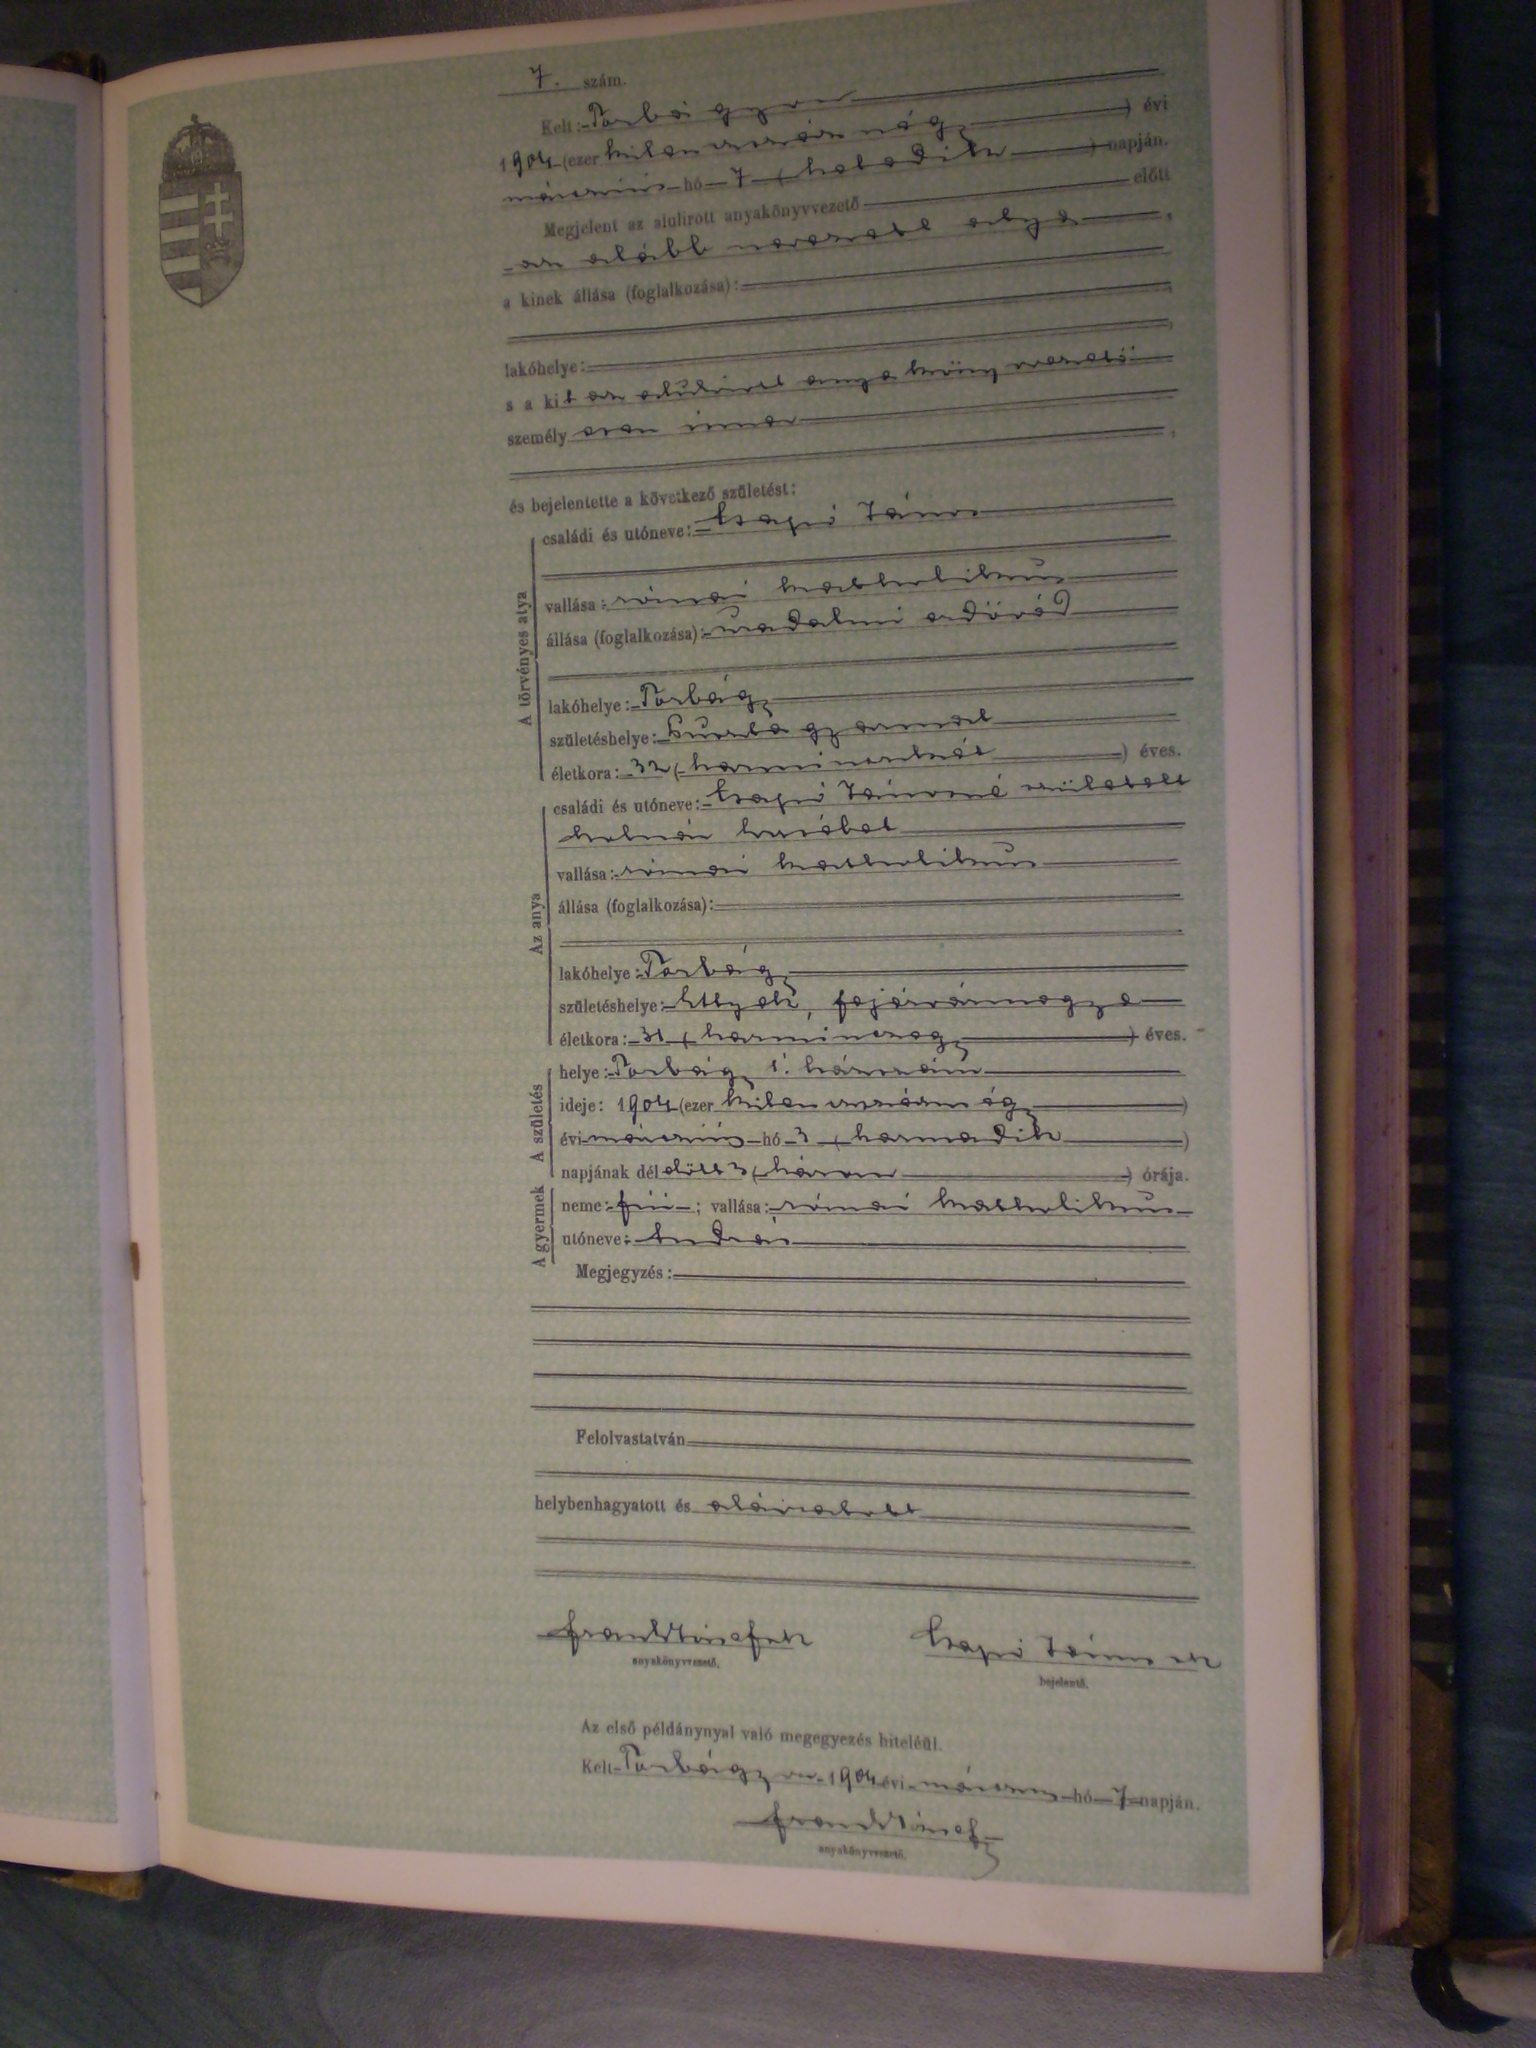 7. szám.
Kelt: Torbágyon
1904 (ezer kilenczszáz négy) évi
márczius hó 7 (hetedik) napján.
Megjelent az alulirott anyakönyvvezető előtt
az alább nevezett atya,
a kinek állása (foglalkozása):
lakóhelye:
s a kit az alulirott anyakönyvvezető
személyesen ismer
és bejelentette a következő születést:
A törvényes atya
családi és utóneve: Csapó János
vallása: római katholikus
állása (foglalkozása): uradalmi erdőőr
lakóhelye: Torbágy
születéshelye: gyarmat
életkora: 32 (harminczkét) éves.
Az anya
családi és utóneve: Csapó Jánosné született
Molnár Erzsébet
vallása: római katholikus
állása (foglalkozása):
lakóhelye: Torbágy
születéshelye: Etyek, Fejérvármegye
életkora: 31 (harminczegy) éves.
A születés
helye: Torbágy 1. házszám
ideje: 1904 (ezer kilenczszáz négy)
évi márczius hó 3 (harmadik)
napjának dél előtt 3 (három) órája.
A gyermek
neme: fiú; vallása: római katholikus
utóneve: András
Megjegyzés:
Felolvastatván
helybenhagyatott és aláiratott
anyakönyvvezető.
Csapó János
bejelentő.
Az első példánynyal való megegyezés hiteléül.
Kelt Torbágyon 1904 évi márczius hó 7 napján.
anyakönyvvezető.